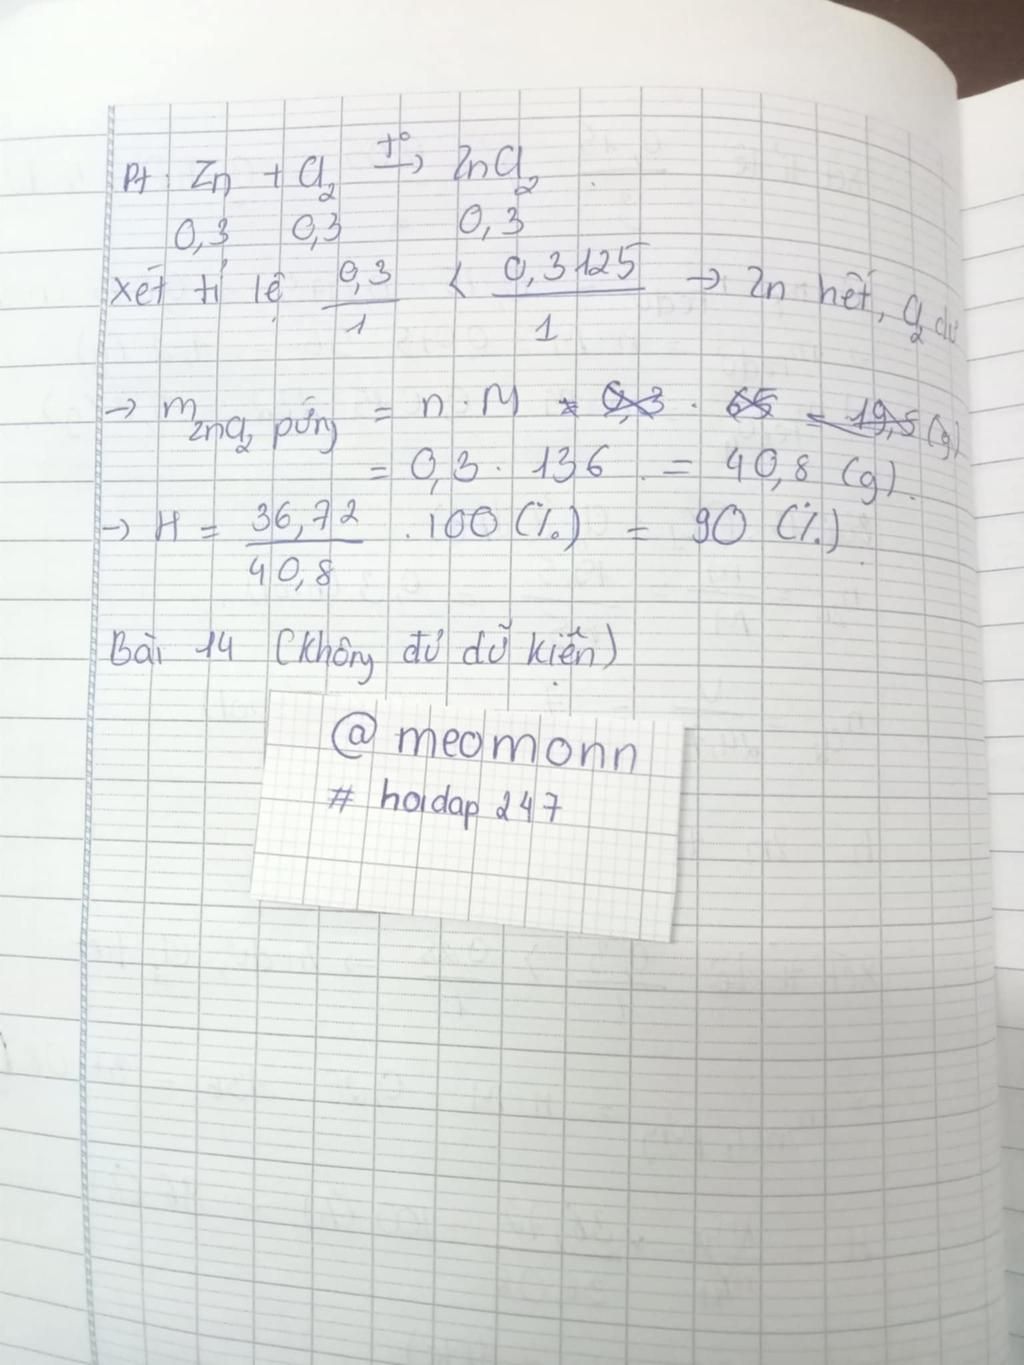 Pt: Zn + Cl2 t°→ ZnCl2
0,3 0,3 0,3
Xét tỉ lệ 0,3/1 < 0,3125/1 → Zn hết, Cl2 dư
→ m ZnCl2 pứng = n.M = 0,3 . 65 = 19,5 (g)
= 0,3 . 136 = 40,8 (g).
→ H = 36,72/40,8 . 100 (%) = 90 (%)
Bài 14 (Không đủ dữ kiện)
@ meomonn
# hoidap 247